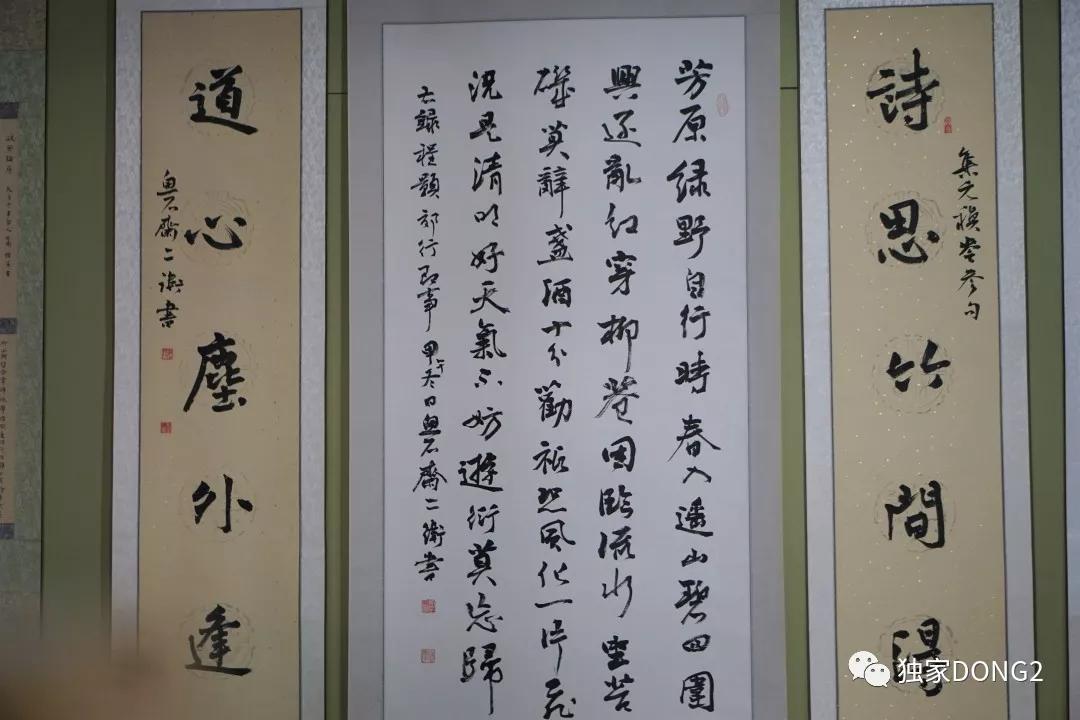 詩思竹間得
集元稹岑參句
芳原绿野自行時春入遥山碧四圍
興逐亂红穿柳巷困臨流水坐苔
磯莫辭盞酒十分勸祗恐風化一片飛
況是清明好天氣不妨遊衍莫忘歸
右録程顥郊行即事甲午冬日魚石齋二衛書
道心塵外逢
魚石齋二衛書
独家DONG2